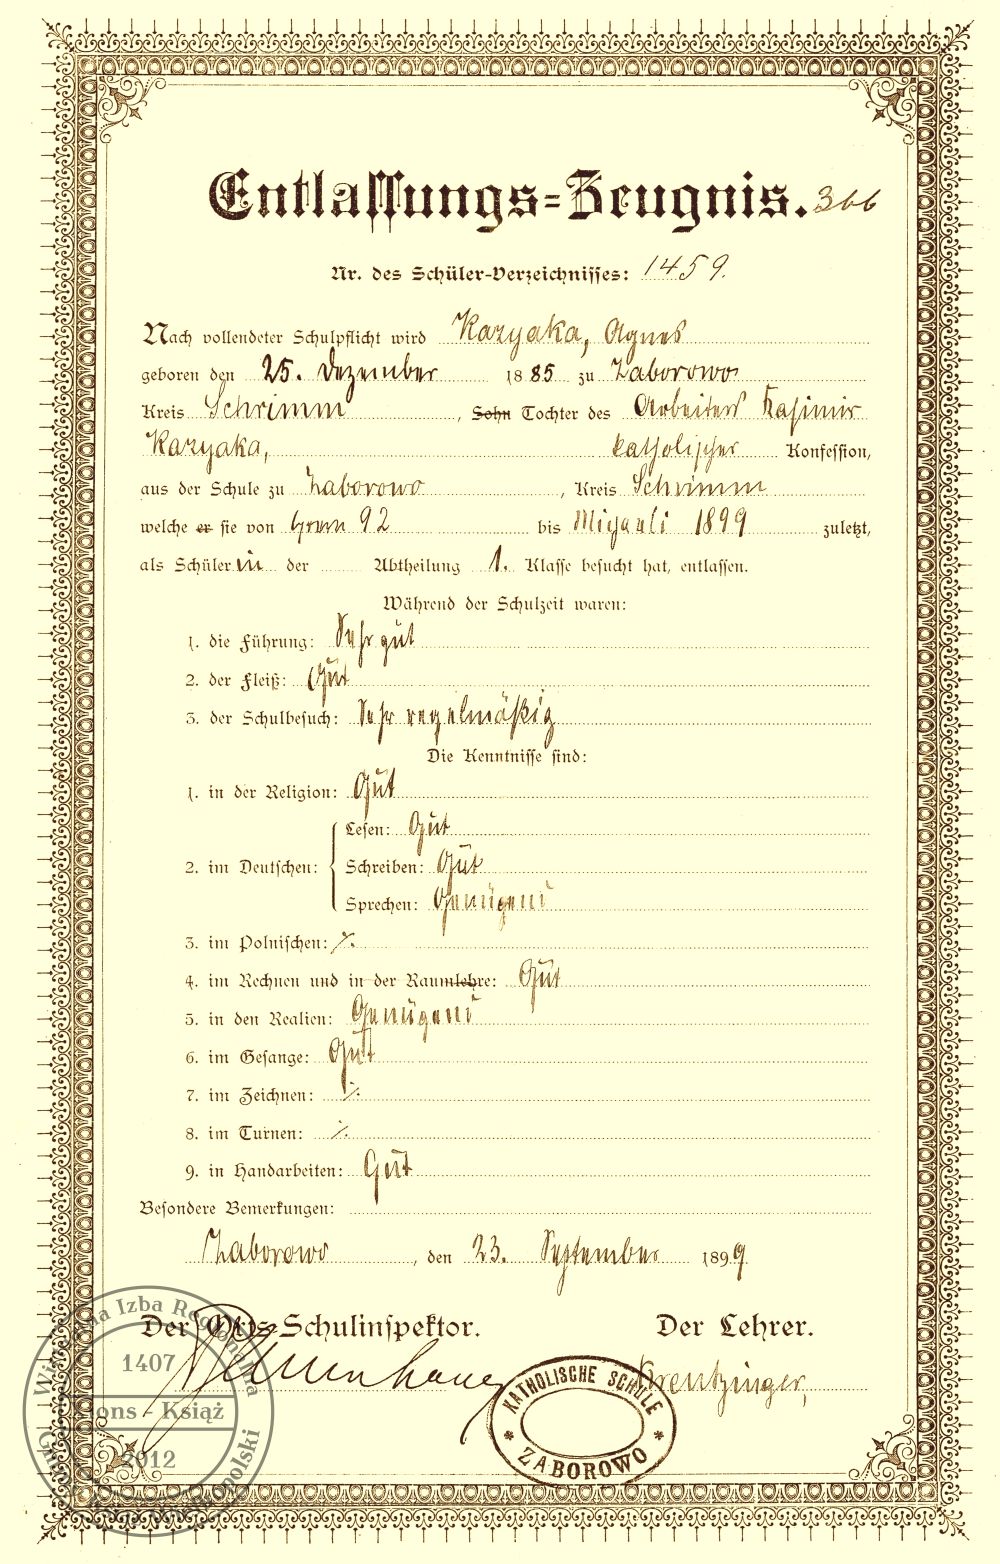 Entlassungs-Zeugnis. 366
Nr. des Schüler-Verzeichnisses: 1459.
Nach vollendeter Schulpflicht wird Kazyaka, Agnes
geboren den 25. Dezember 1885 zu Zaborowo
Kreis Schrimm, Sohn Tochter des Arbeiters Kasimir
Kazyaka, katholischer Konfession,
aus der Schule zu Zaborowo, Kreis Schrimm
welche er sie von 92 bis Michaeli 1899 zuletzt,
als Schülerin der Abtheilung 1. Klasse besucht hat, entlassen.
Während der Schulzeit waren:
1. die Führung: Sehr gut
2. der Fleiß: Gut
3. der Schulbesuch: Sehr regelmäßig
Die Kenntnisse sind:
1. in der Religion: Gut
2. im Deutschen: Lesen: Gut
Schreiben: Gut
Sprechen: Genügend
3. im Polnischen: ⁒
4. im Rechnen und in der Raumlehre: Gut
5. in den Realien: Genügend
6. im Gesange: Gut
7. im Zeichnen: ⁒
8. im Turnen: ⁒
9. in Handarbeiten: Gut
Besondere Bemerkungen:
Zaborowo, den 23. September 1899
Der Orts-Schulinspektor. Der Lehrer.
Kreutzinger,
KATHOLISCHE SCHULE
* ZABOROWO *
Izba Regionalna
1407
Xions - Książ
2012